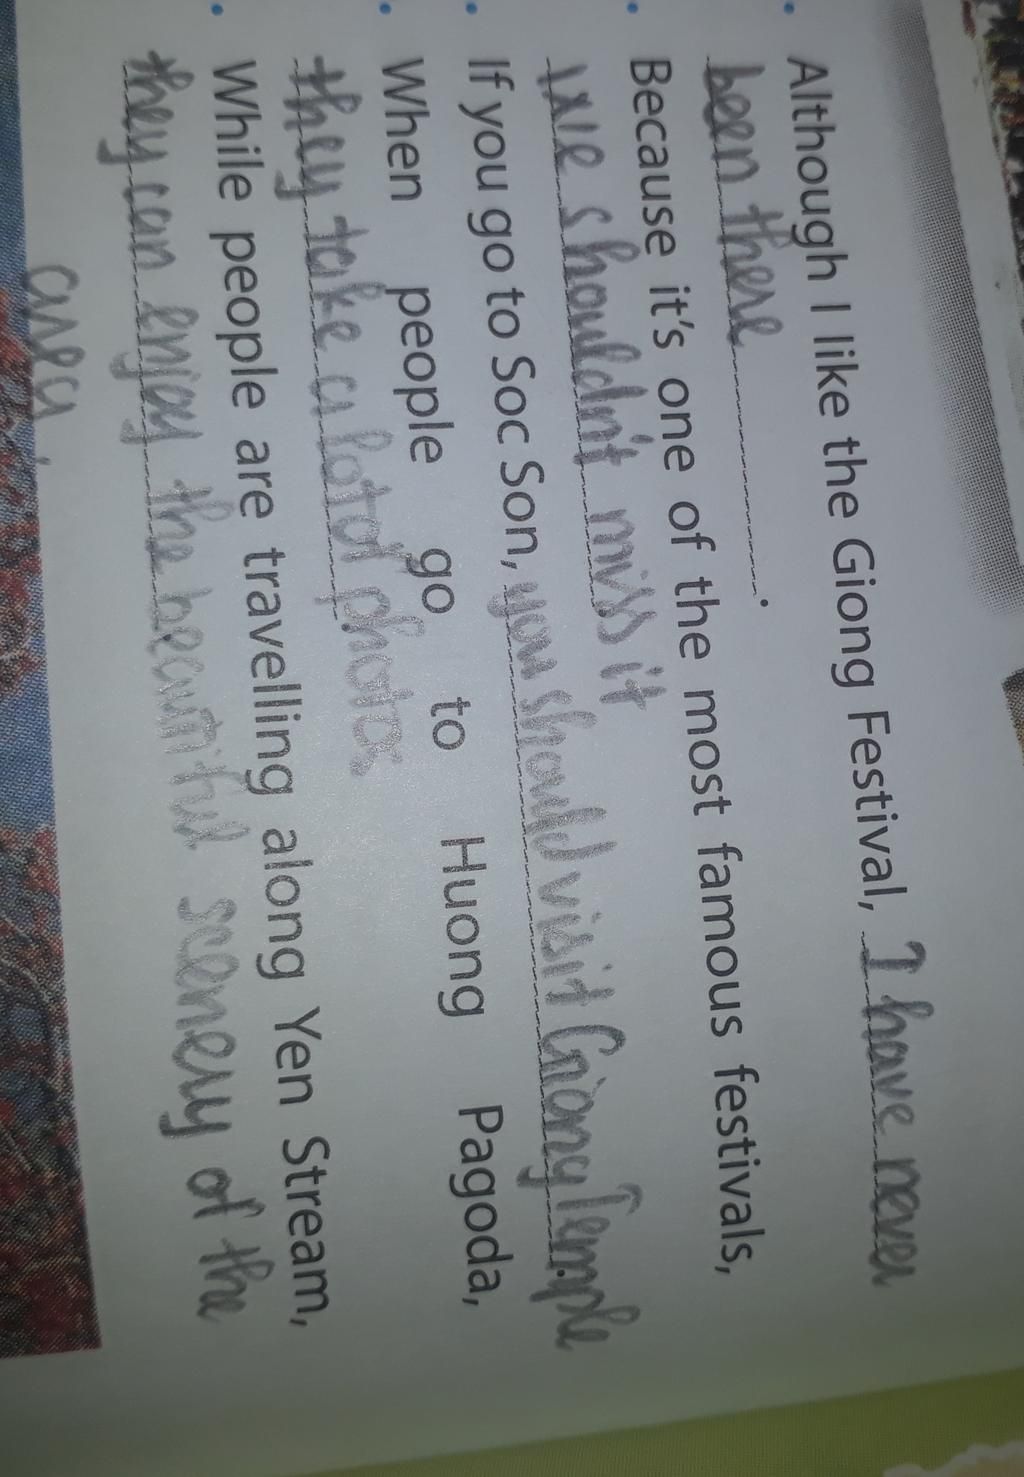 • Although I like the Giong Festival, I have never
been there .
• Because it's one of the most famous festivals,
we shouldn't miss it
• If you go to Soc Son, you should visit Giong Temple
• When people go to Huong Pagoda,
they take a lot of photos.
• While people are travelling along Yen Stream,
they can enjoy the beautiful scenery of the
area.